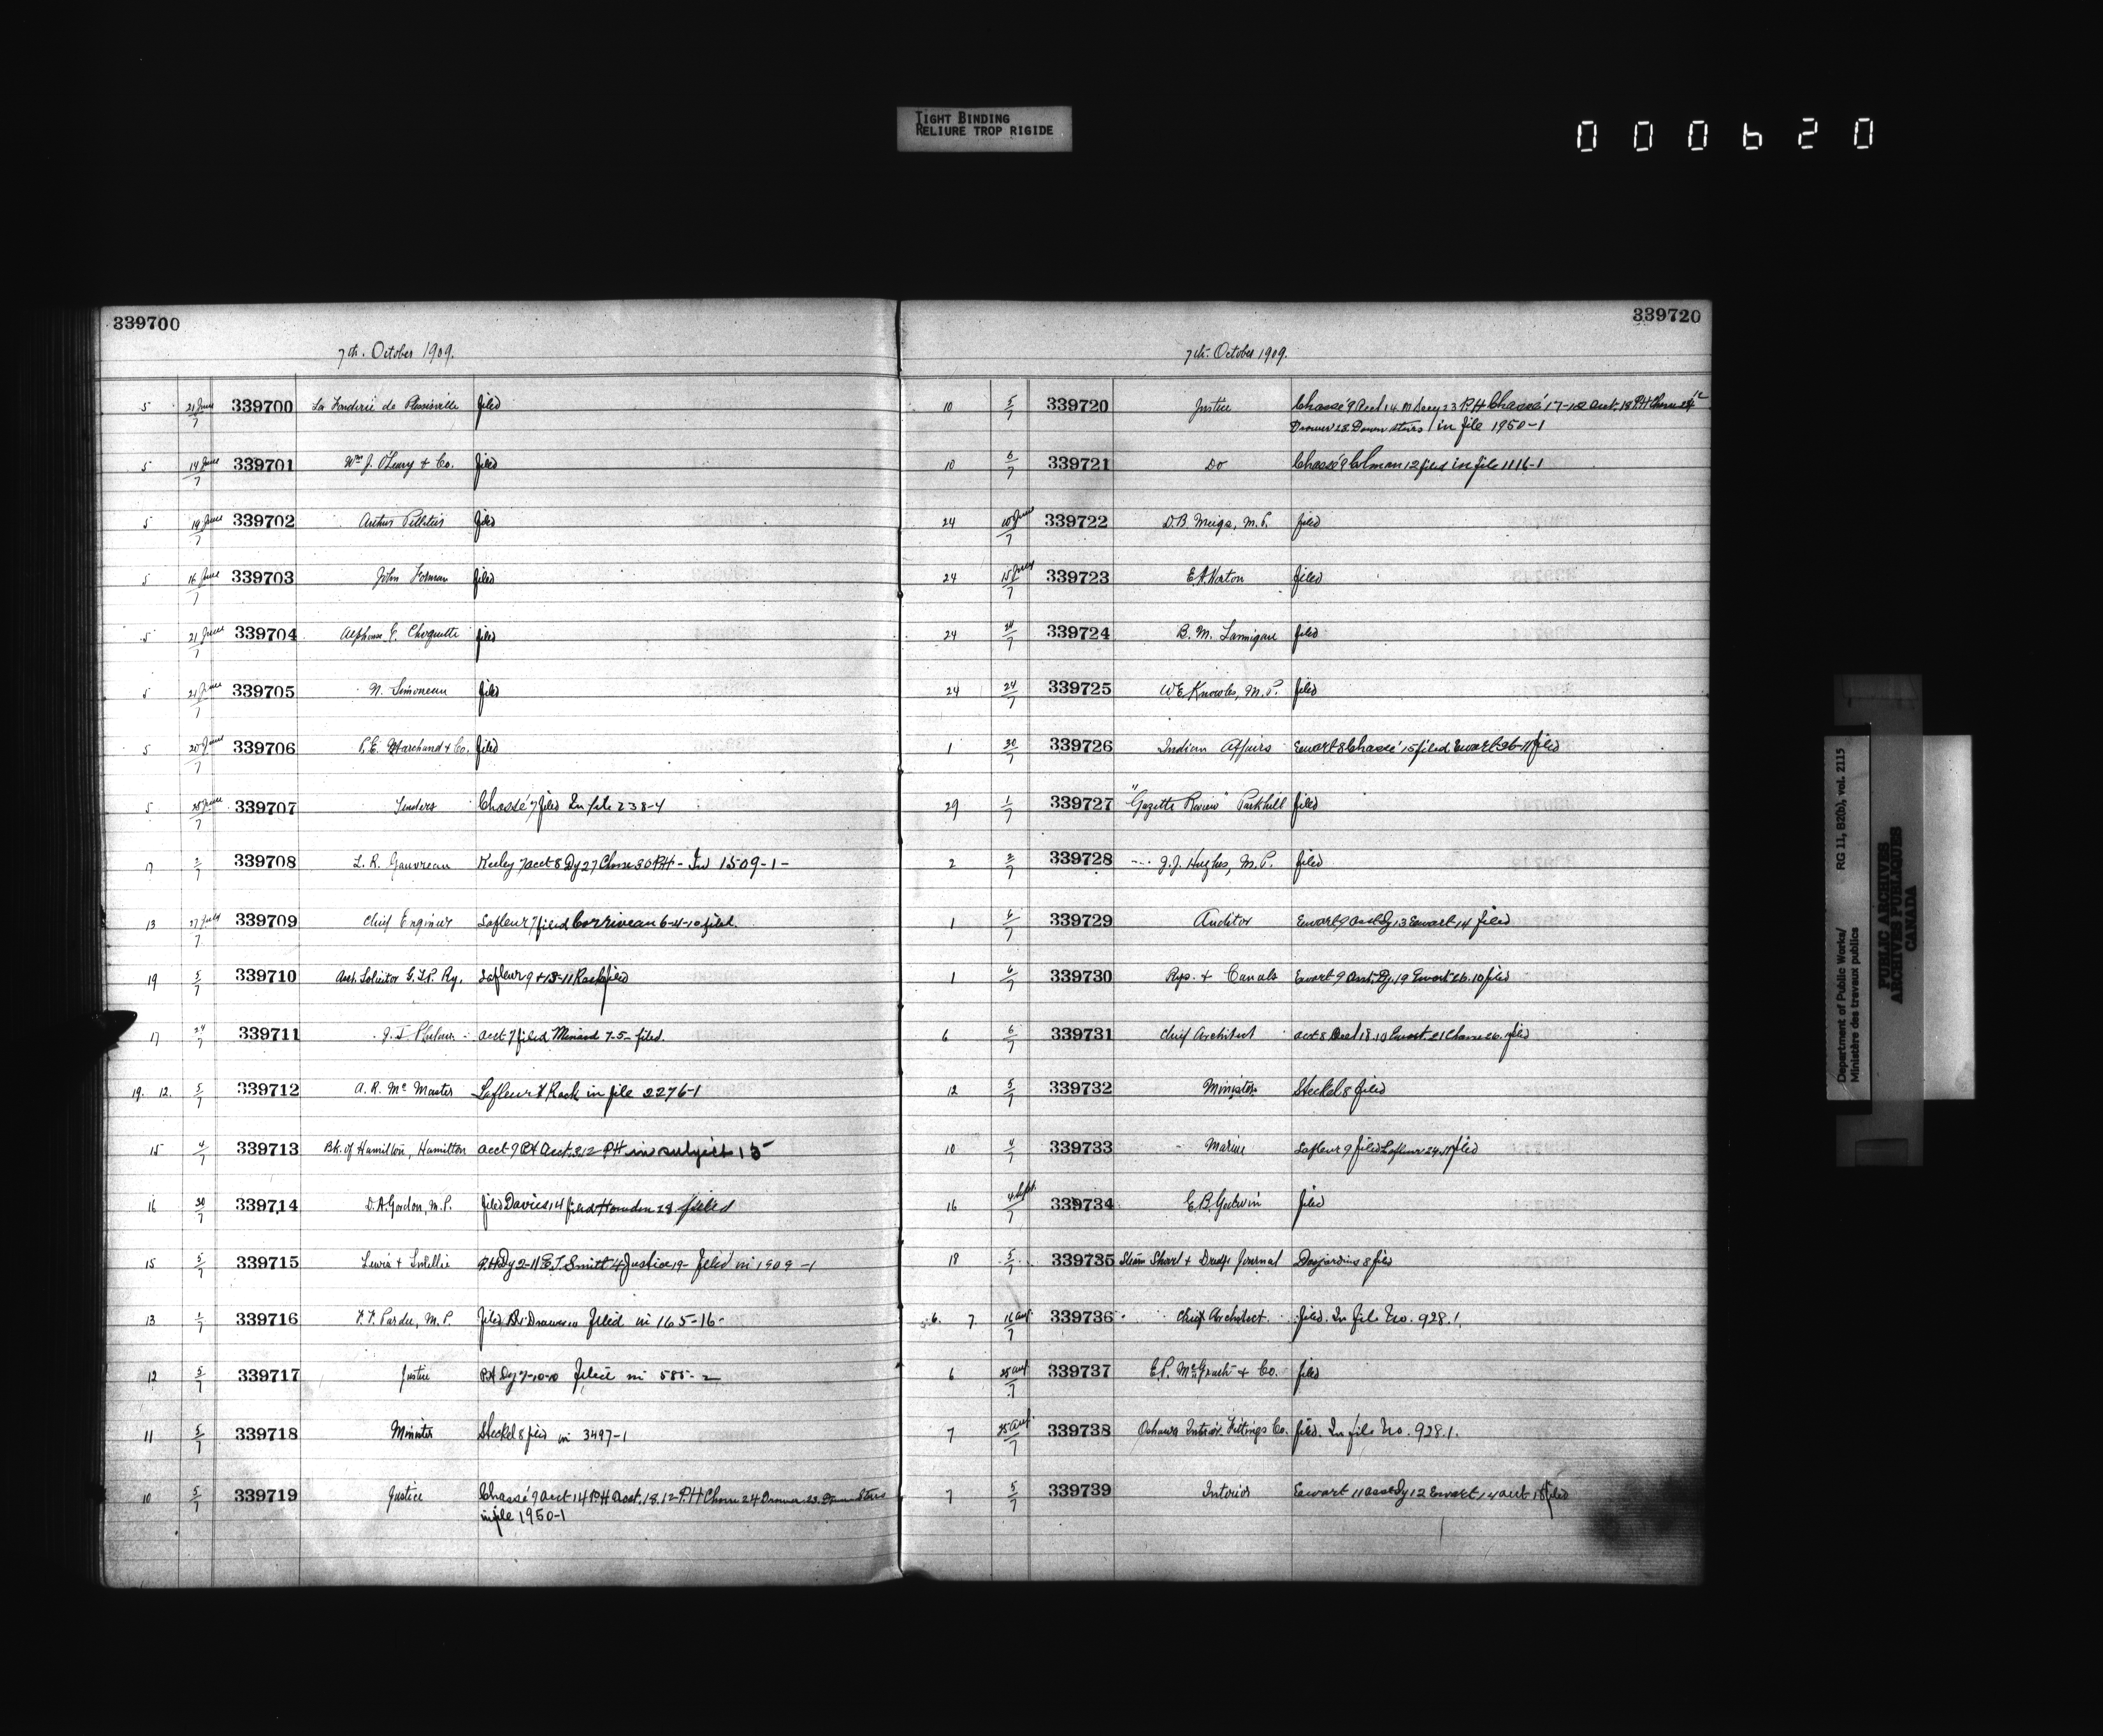 TIGHT BINDING
RELIURE TROP RIGIDE
000620
339700
7th. October 1909.
5 21 June/7 339700 La Fonderie de Plessisville filed
5 14 June/7 339701 Wm J. O'Leary & Co. filed
5 19 June/7 339702 Arthur Pelletier filed
5 16 June/7 339703 John Forman filed
5 21 June/7 339704 Alphonse G. Choquette filed
5 21 June/7 339705 N. Simoneau filed
5 20 June/7 339706 P.E. Marchand & Co. filed
5 25 June/7 339707 Tenders Chassé 7 filed In file 238-4
17 2/7 339708 L. R. Gauvreau Keeley 7 acct 8 Dy 27 Chasse 30 P.H - 1509-1-
13 27 July/7 339709 Chief Engineer Lafleur 7 filed Corriveau 6-4-10 filed.
19 5/7 339710 Asst. Solicitor G.T.P. Ry. Lafleur 9 & 13-11 Rack filed
17 24/7 339711 acct 7 filed Menard 7-5- filed.
19. 12. 5/7 339712 A. R. McMaster Lafleur Rack in file 2276-1
15 4/7 339713 Bk. of Hamilton, Hamilton acct 9 P.H acct. 3.12 P.H in subject 15
16 30/7 339714 D.A. Gordon, M.P. filed Davies 14 filed Howden 28 filed
15 5/7 339715 Lewis & Smellie P.H Dy 2-11 E.T. Smith 4 Justice 19- filed in 1909-1
13 1/7 339716 F.F. Pardee, M.P. filed filed in 165-16-
12 5/7 339717 Justice P.H Dy 7-10-10 filed in 585-2
11 5/7 339718 Minister Steckel 8 filed in 3497-1
10 5/7 339719 Justice Chassé 9 acct 14 P.H acct. 18.12 P.H Chasse 24 Drawer 23. Down Stairs
in file 1950-1
339720
7th. October 1909.
10 5/7 339720 Justice Chassé 9 acct 14 23 P.H Chassé 17-12 acct. 18 P.H Chasse 24
Drawer 23 Down stairs / in file 1950-1
10 6/7 339721 Do Chassé 9 Colman 12 filed in file 1116-1
24 10 June/7 339722 D.B. Meigs, M.P. filed
24 15 July/7 339723 E.A. Horton filed
24 24/7 339724 B. M. Lannigan filed
24 24/7 339725 W.E. Knowles, M.P. filed
1 30/7 339726 Indian Affairs Ewart 8 Chassé 15 filed Ewart 26-11 filed
29 1/7 339727 "Gazette Review" Parkhill filed
2 2/7 339728 J.J. Hughes, M.P. filed
1 6/7 339729 Auditor Ewart 9 acct Dy 13 Ewart 14 filed
1 6/7 339730 Rys. & Canals Ewart 9 Dy. 19 Ewart 26.10 filed
6 6/7 339731 Chief Architect acct 8 acct 18.10 Ewart. 21 Chasse 26. filed
12 5/7 339732 Minister Steckel 8 filed
10 4/7 339733 Marine Lafleur 9 filed Lafleur 24.11 filed
16 4 Sept./7 339734 E.B. Godwin filed
18 5/7 339735 Steam Shovel & Dredge Journal Desjardins 8 filed
6. 7 16 Aug./7 339736 Chief Architect. filed. In file No. 928.1.
6 25 Aug/7 339737 E.P. McGrath & Co. filed
7 25 Aug./7 339738 Oshawa Interior Fittings Co. filed. In file No. 928.1.
7 5/7 339739 Interior Ewart 11 acct Dy 12 Ewart 14 acct 18 filed
Department of Public Works/ RG 11, B2(b), vol. 2115
Ministère des travaux publics
PUBLIC ARCHIVES
ARCHIVES PUBLIQUES
CANADA